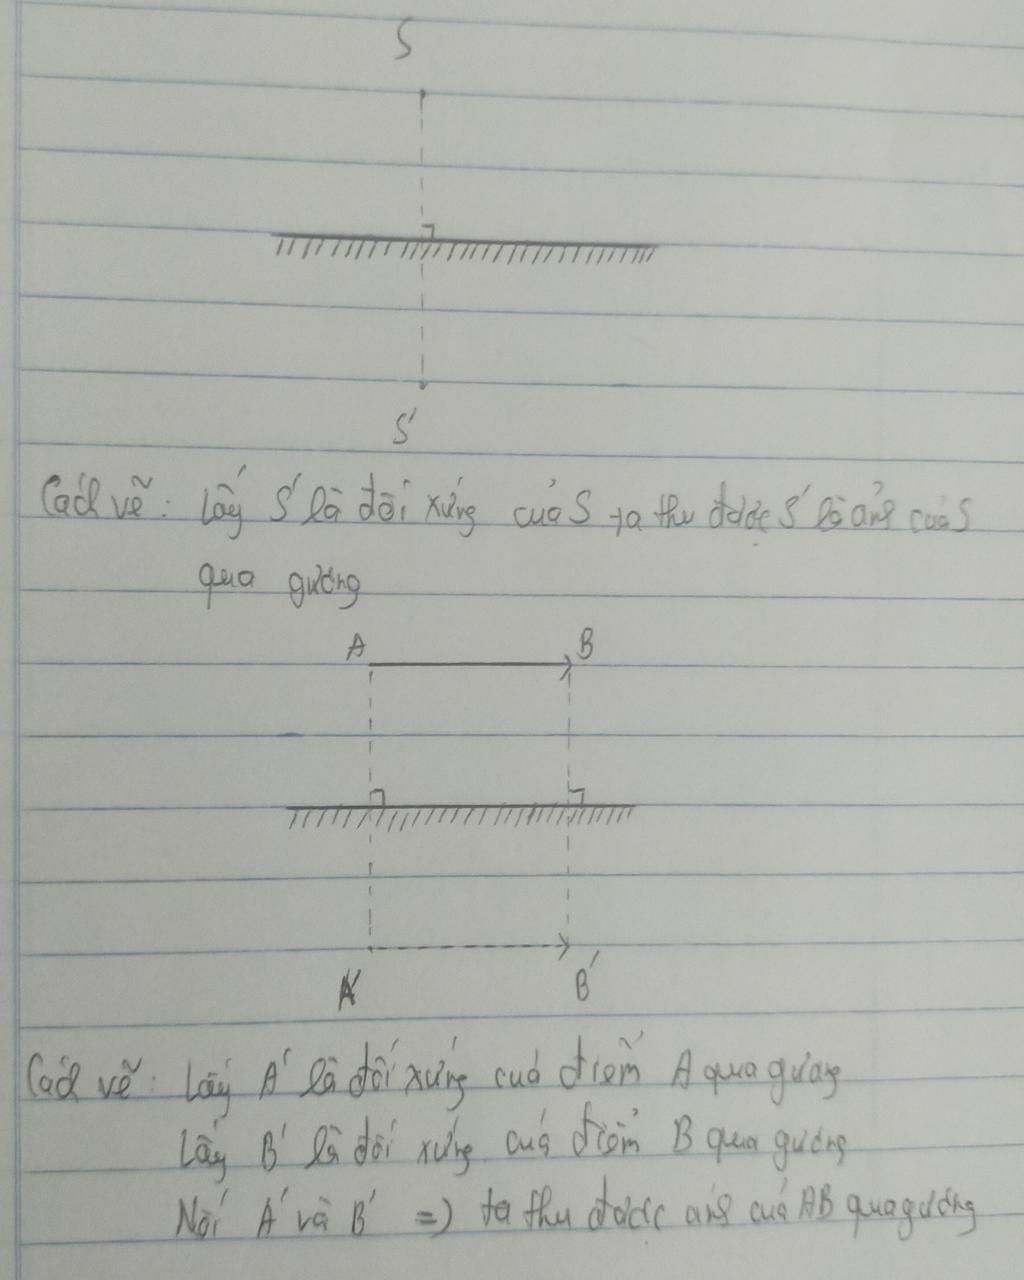 S
S'
Cách vẽ: Lấy S' là đối xứng của S ta thu được S' là ảnh của S
qua gương
A B
A' B'
Cách vẽ: Lấy A' là đối xứng của điểm A qua gương
Lấy B' là đối xứng của điểm B qua gương
Nối A' và B' => ta thu được ảnh của AB qua gương